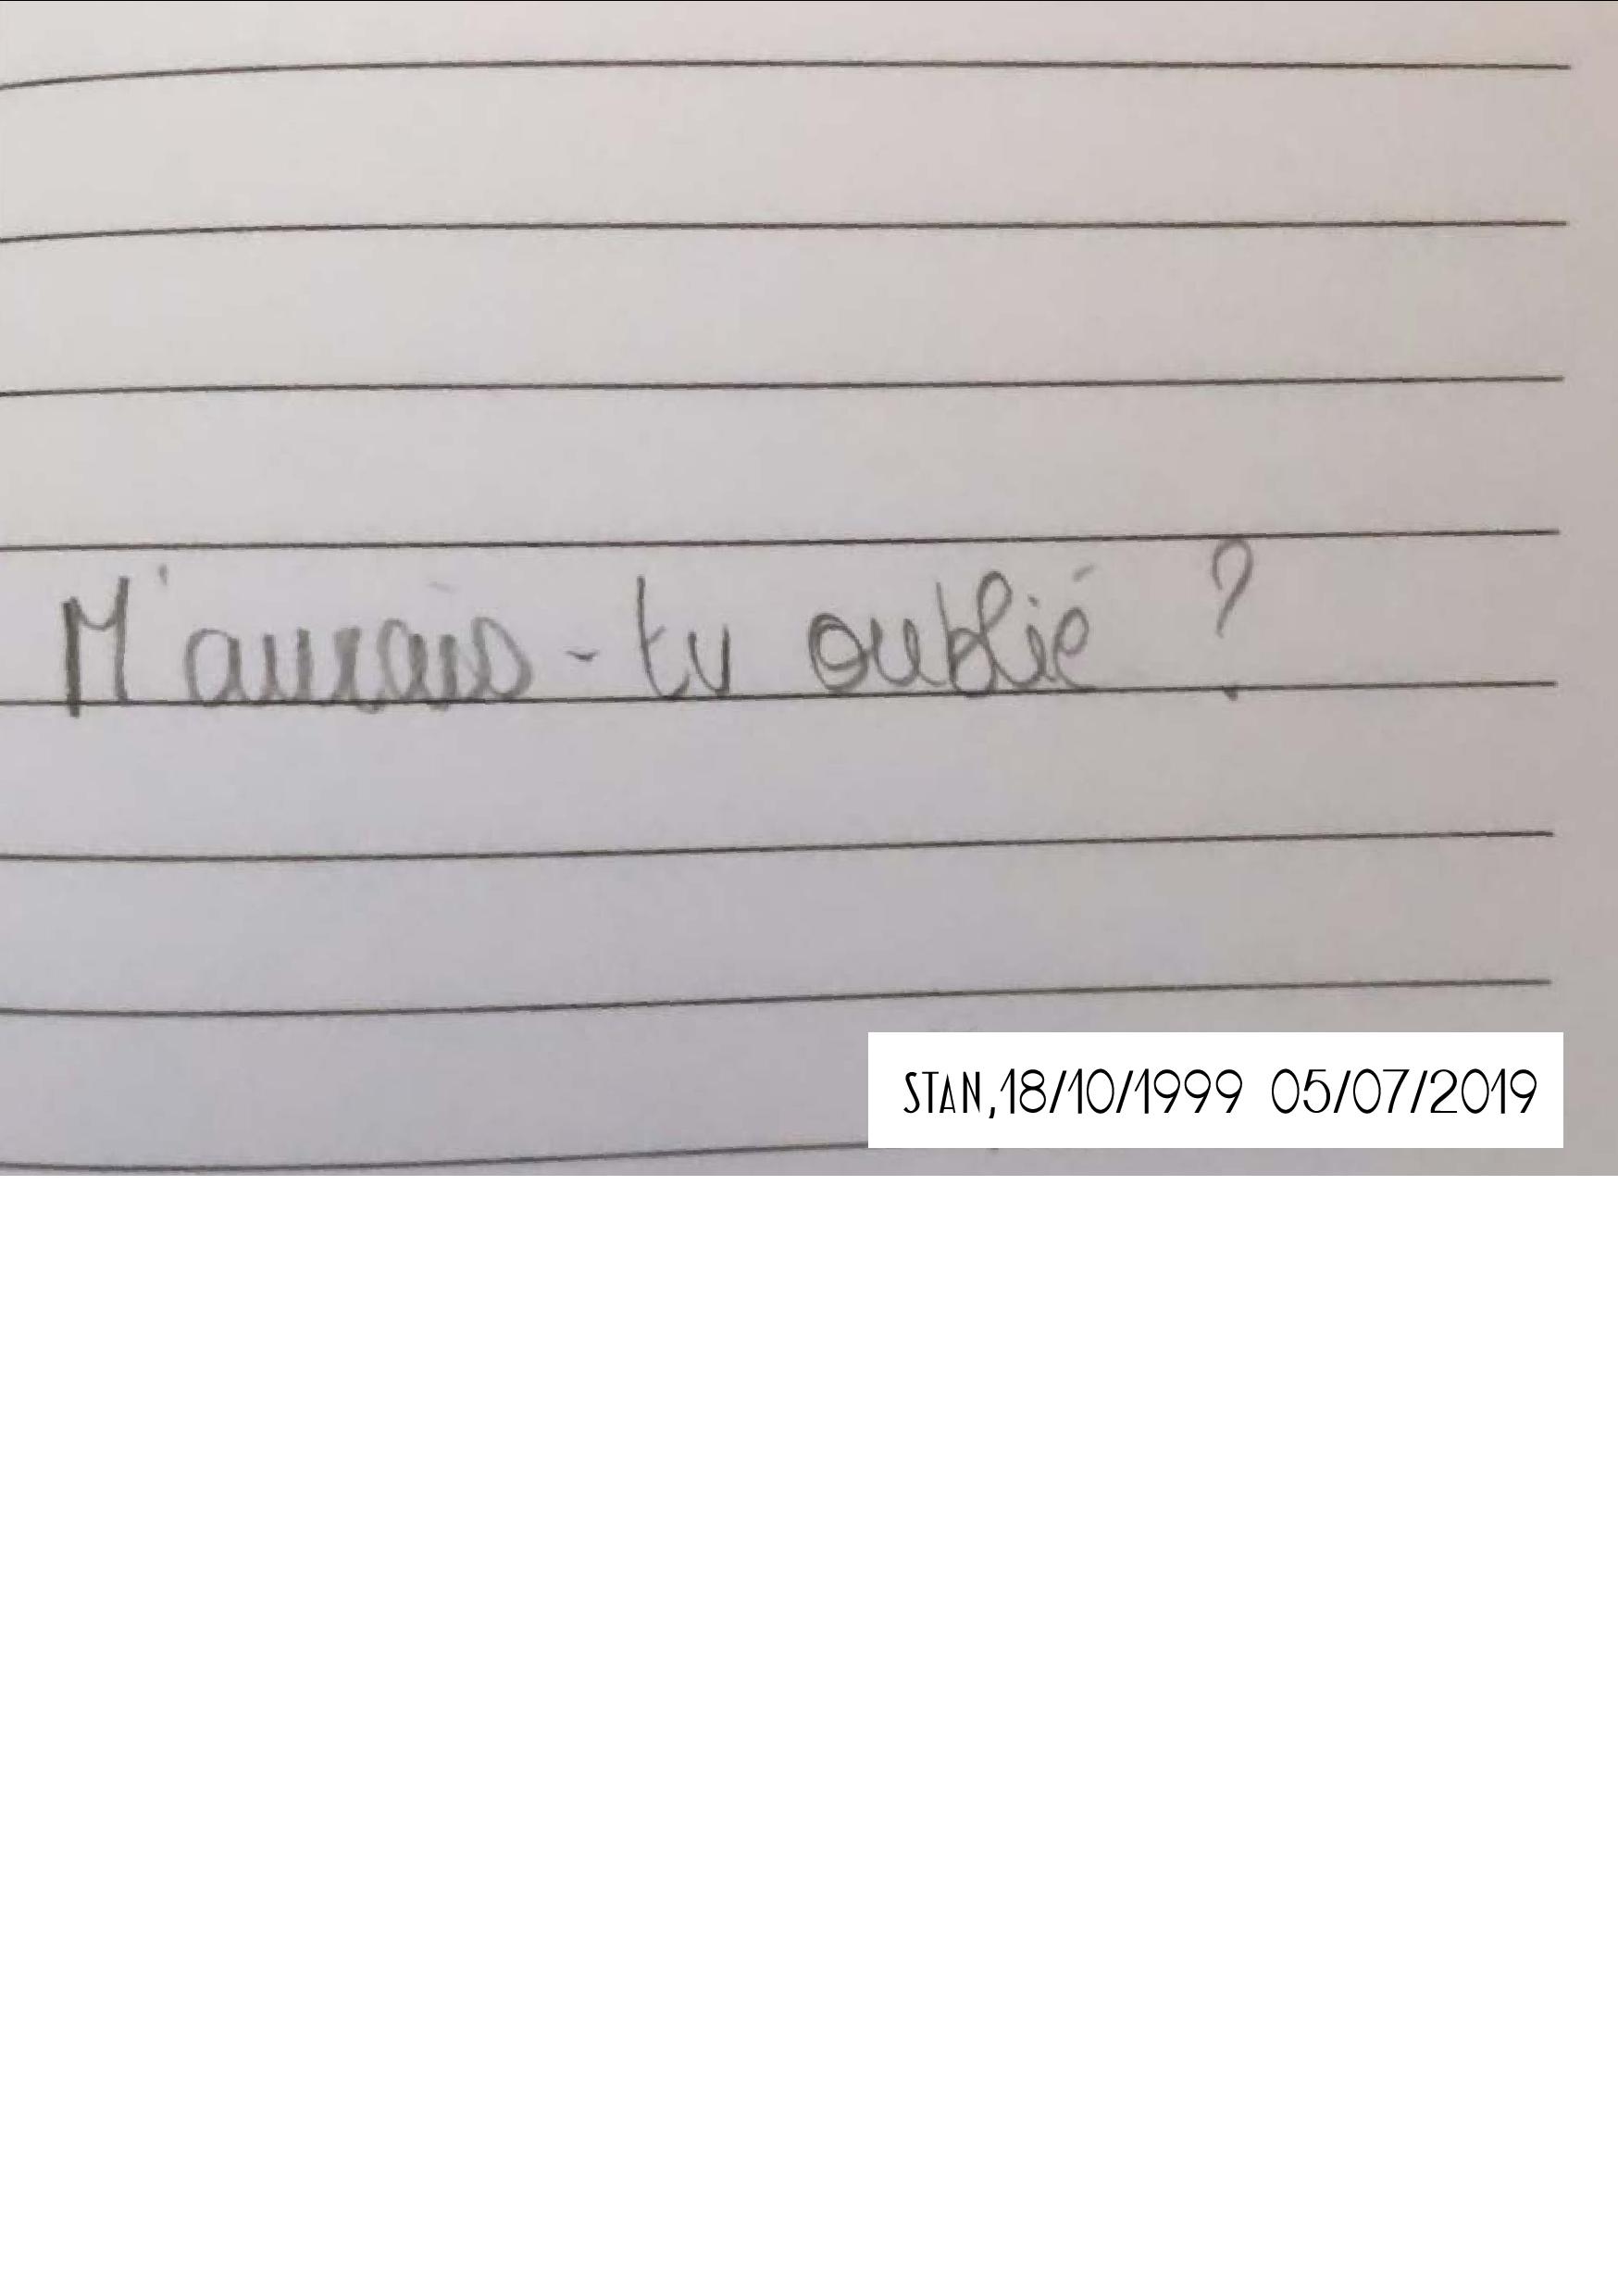 M'aurais-tu oublié ?
STAN,18/10/1999 05/07/2019